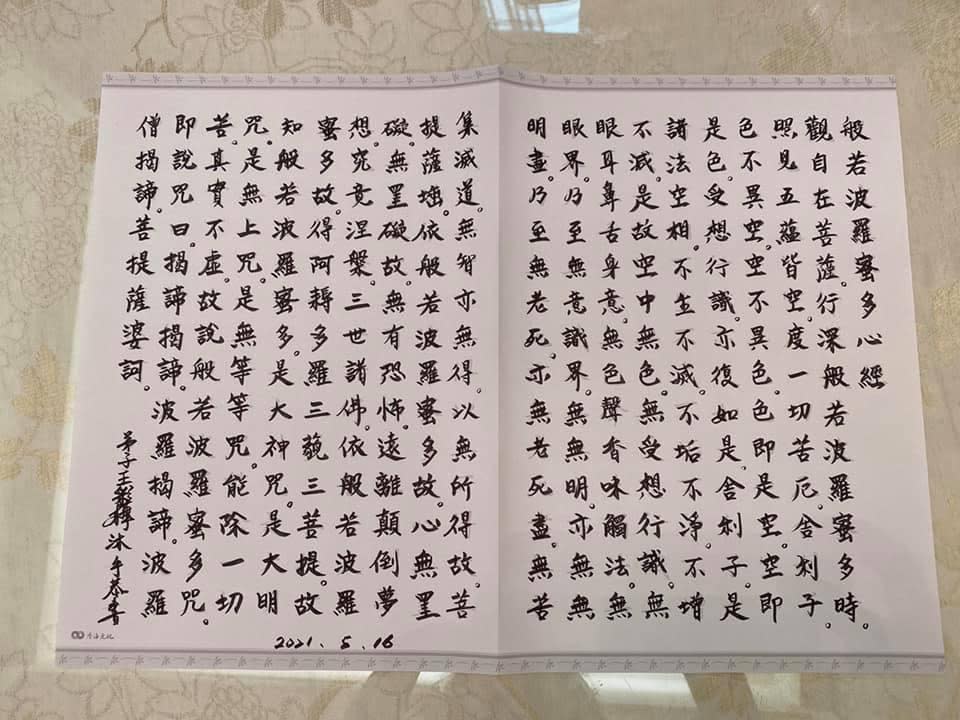 般若波羅蜜多心經
觀自在菩薩。行深般若波羅蜜多時。
照見五蘊皆空。度一切苦厄。舍利子。
色不異空。空不異色。色即是空。空即
是色。受想行識。亦復如是。舍利子。是
諸法空相。不生不滅。不垢不淨。不增
不減。是故空中無色。無受想行識。無
眼耳鼻舌身意。無色聲香味觸法。無
眼界。乃至無意識界。無無明。亦無無
明盡。乃至無老死。亦無老死盡。無苦
集滅道。無智亦無得。以無所得故。菩
提薩埵。依般若波羅蜜多故。心無罣
礙。無罣礙故。無有恐怖。遠離顛倒夢
想。究竟涅槃。三世諸佛。依般若波羅
蜜多故。得阿耨多羅三藐三菩提。故
知般若波羅蜜多。是大神咒。是大明
咒。是無上咒。是無等等咒。能除一切
苦。真實不虛。故說般若波羅蜜多咒。
即說咒曰。揭諦揭諦。波羅揭諦。波羅
僧揭諦。菩提薩婆訶。
弟子王 沐手恭書
2021.5.16